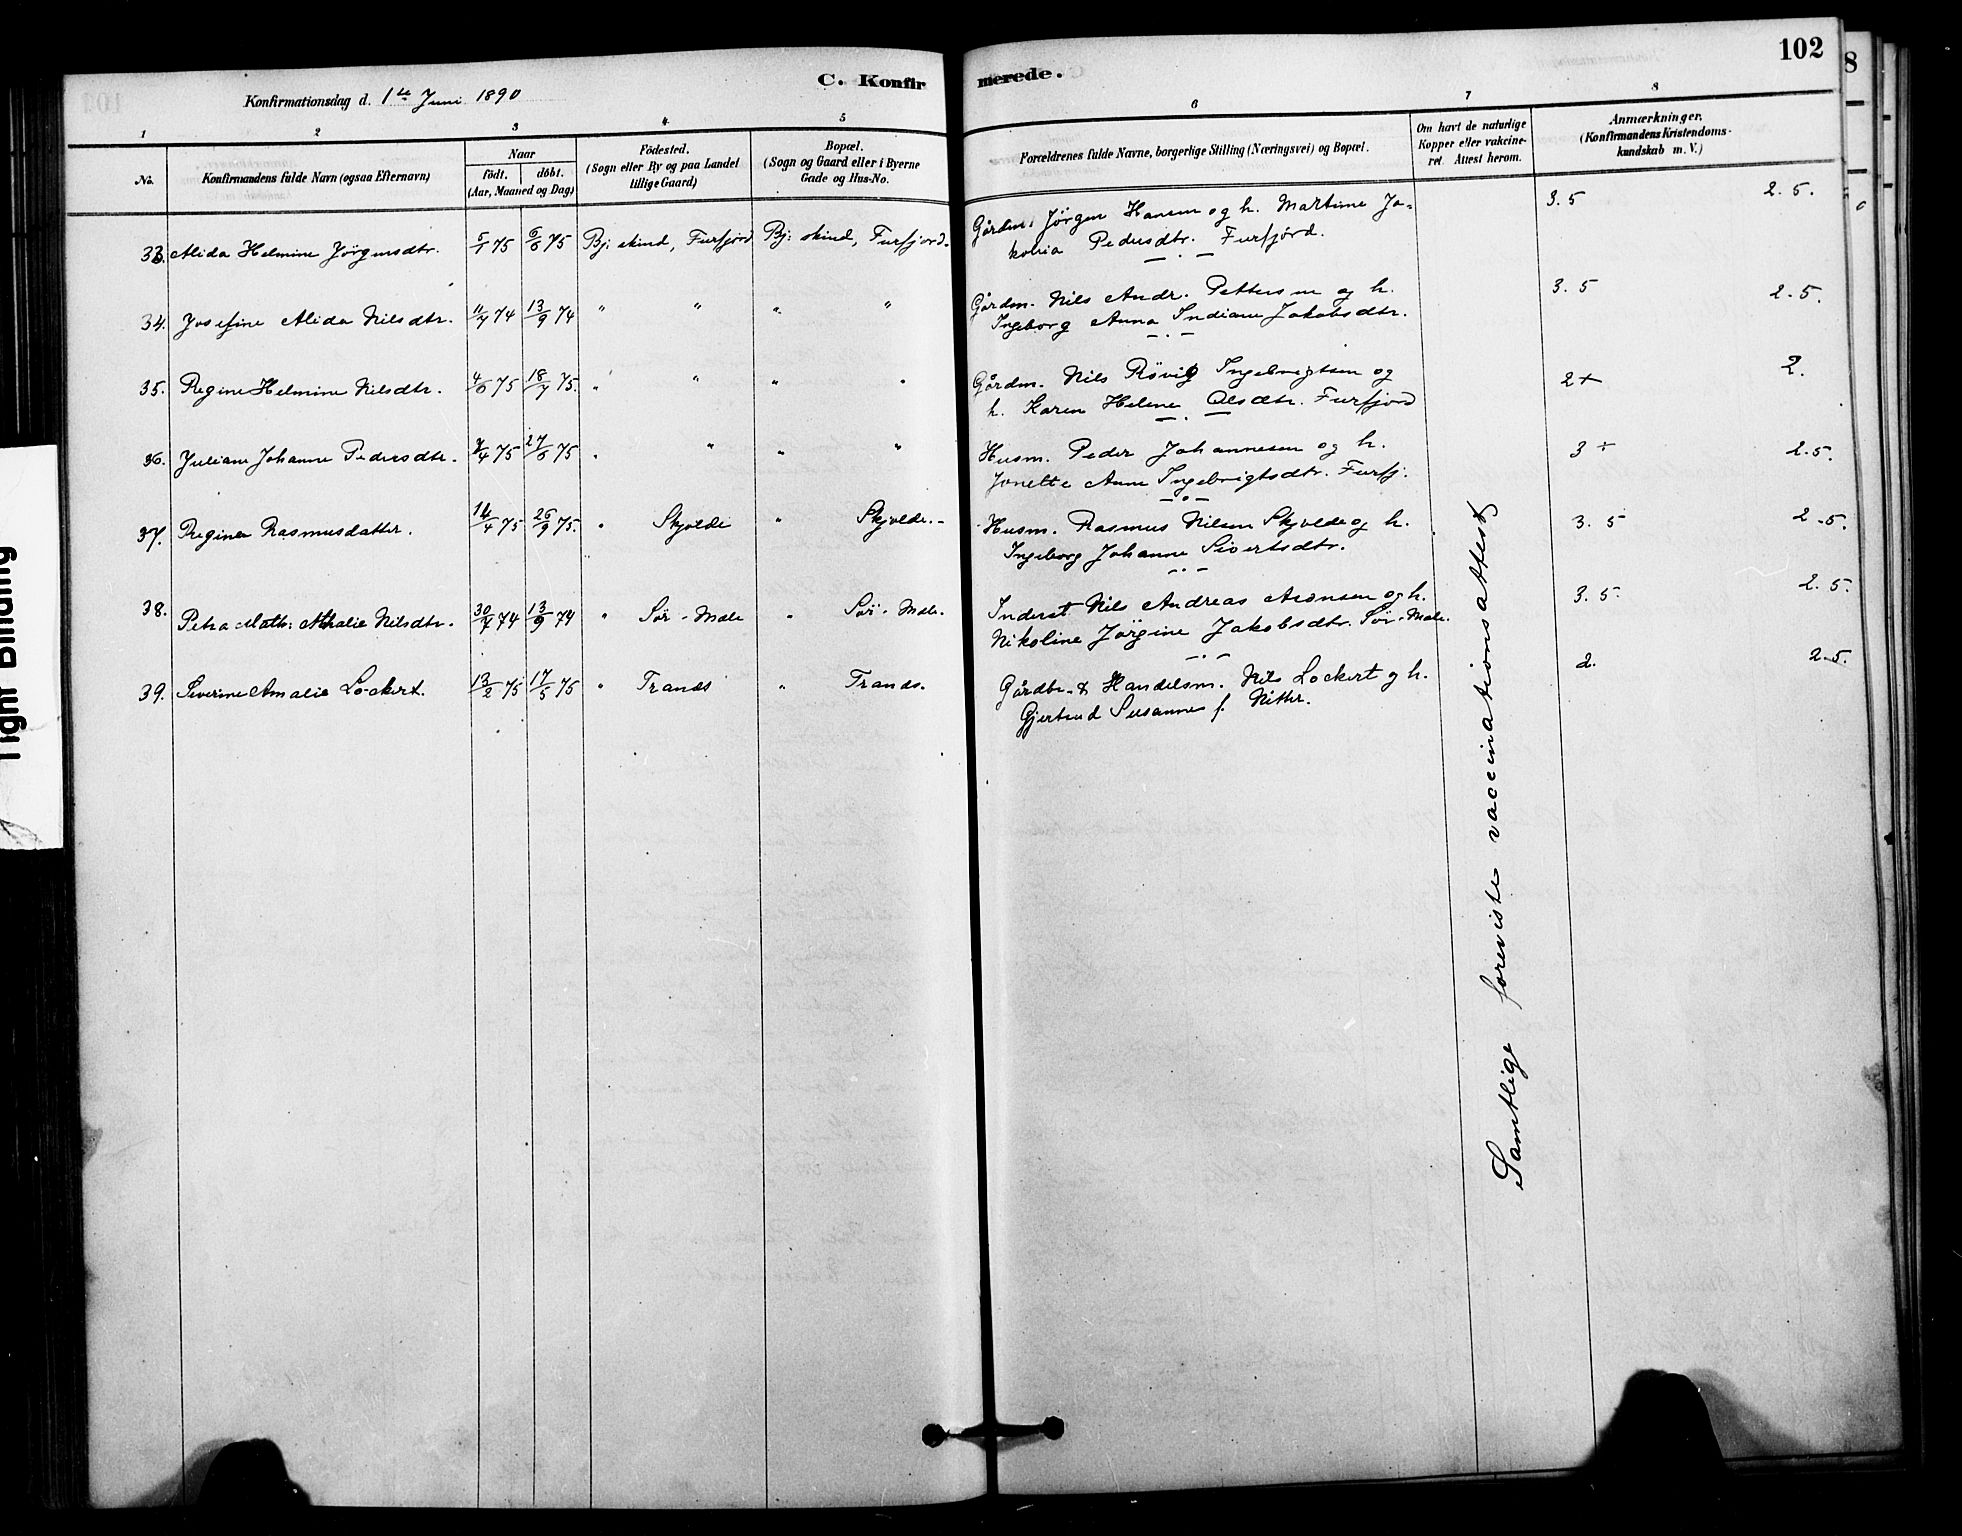 102
C. Konfirmerede.
Konfirmationsdag d. 1ste Juni 1890
1 2 3 4 5 6 7 8
No.
Konfirmandens fulde Navn (ogsaa Efternavn)
Naar
födt. döbt.
(Aar, Maaned og Dag)
Födested.
(Sogn eller By og paa Landet
tillige Gaard)
Bopæl.
(Sogn og Gaard eller i Byerne
Gade og Hus-No.
Forældrenes fulde Navne, borgerlige Stilling (Næringsvei) og Bopæl.
Om havt de naturlige
Kopper eller vakcine-
ret. Attest herom.
Anmærkninger.
(Konfirmandens Kristendoms-
kundskab m. V.)
33. Alida Helmine Jörgensdtr. 5/1 75 6/6 75 Bj: skind, Furfjord Bj: skind, Furfjord. Gårdm. Jörgen Hansen og h. Martine Ja- 3.5 2.5.
kobia Pedersdtr. Furfjord.
34. Josefine Alida Nilsdtr. 11/7 74 13/9 74 " " " " Gårdm. Nils Andr. Pettersen og h. 3.5 2.5.
Ingeborg Anna Indiane Jakobsdtr.
35. Regine Helmine Nilsdtr. 4/6 75 18/7 75. " " " " Gårdm. Nils Røvig Ingebrigtsen og 2+ 2.
h. Karen Helene Olsdtr. Furfjord
36. Juliane Johanne Pedersdtr. 75 27/6 75 " " " " Husm. Peder Johannesen og h. 3+ 2.5.
Jonette Anne Ingebrigtsdtr. Furfj.
37. Regine Rasmusdatter. 14/4 75 26/9 75. " Skjolde " Skjolde. Husm. Rasmus Nilsen Skjolde og h. 3.5 2.5.
Ingeborg Johanne Sivertsdtr.
38. Petra Math: Nilsdtr. 30/7 74 13/9 74 " Sör-Mele " Sör-Mele. Inderst Nils Andreas Aronsen og h. 3.5 2.5.
Nikoline Jörgine Jakobsdtr. Sör-Mele.
39. Severine Amalie Lockert. 13/2 75 17/5 75 " Trands " Trands. Gårdbr. & Handelsm. Nils Lockert og h. 2. 2.5.
Gjertrud Susanne f. Nitter.
Samtlige foreviste vaccinationsattest
Tight Binding
8